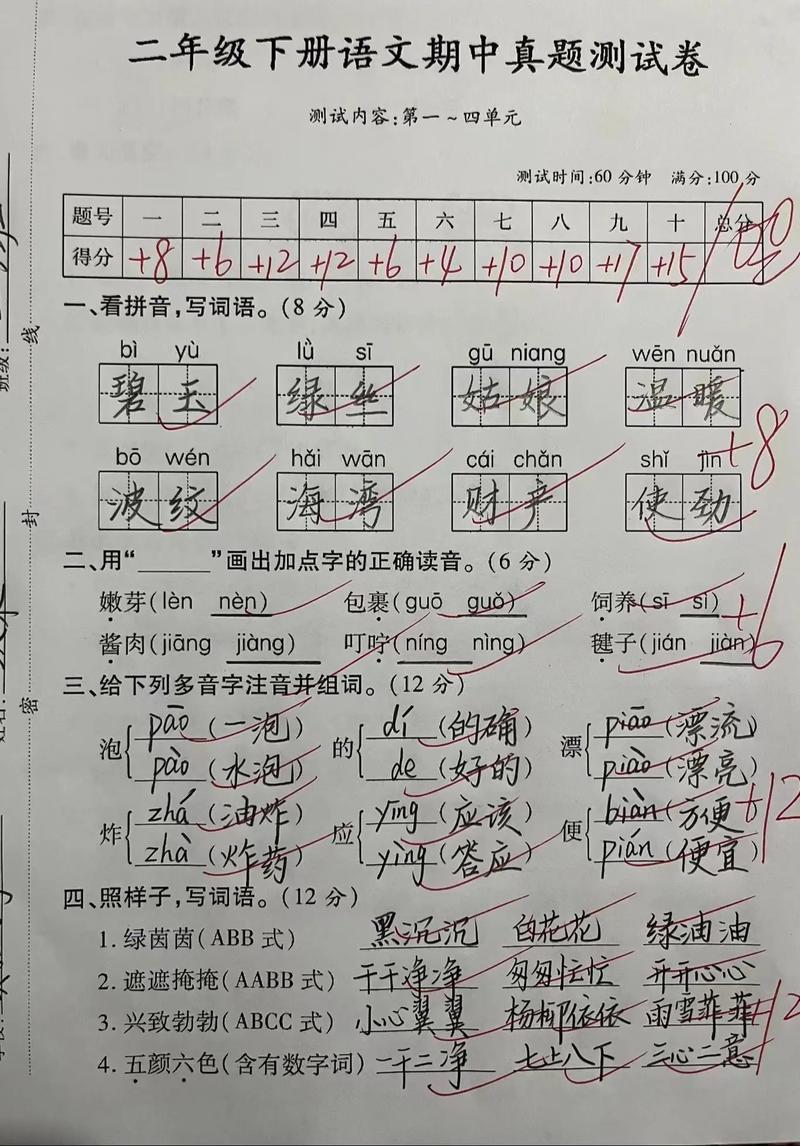 二年级下册语文期中真题测试卷
测试内容:第一~四单元
测试时间:60分钟 满分:100分
题号 一 二 三 四 五 六 七 八 九 十 总分
得分 +8 +6 +12 +12 +6 +4 +10 +10 +17 +15 100
一、看拼音,写词语。(8分)
bì yù lǜ sī gū niang wēn nuǎn
碧玉 绿丝 姑娘 温暖
+8
bō wén hǎi wān cái chǎn shǐ jìn
波纹 海湾 财产 使劲
二、用“______”画出加点字的正确读音。(6分)
嫩芽(lèn nèn) 包裹(guō guǒ) 饲养(sī sì)
+6
酱肉(jiāng jiàng) 叮咛(níng nìng) 毽子(jián jiàn)
三、给下列多音字注音并组词。(12分)
泡 pāo(一泡) 的 dí(的确) 漂 piāo(漂流)
pào(水泡) de(好的) piào(漂亮)
炸 zhá(油炸) 应 yīng(应该) 便 biàn(方便) +12
zhà(炸药) yìng(答应) pián(便宜)
四、照样子,写词语。(12分)
1. 绿茵茵(ABB式) 黑沉沉 白花花 绿油油
2. 遮遮掩掩(AABB式) 干干净净 匆匆忙忙 开开心心
3. 兴致勃勃(ABCC式) 小心翼翼 杨柳依依 雨雪菲菲 +12
4. 五颜六色(含有数字词) 一干二净 七上八下 三心二意
班级:
姓名:
学校:
密 封 线